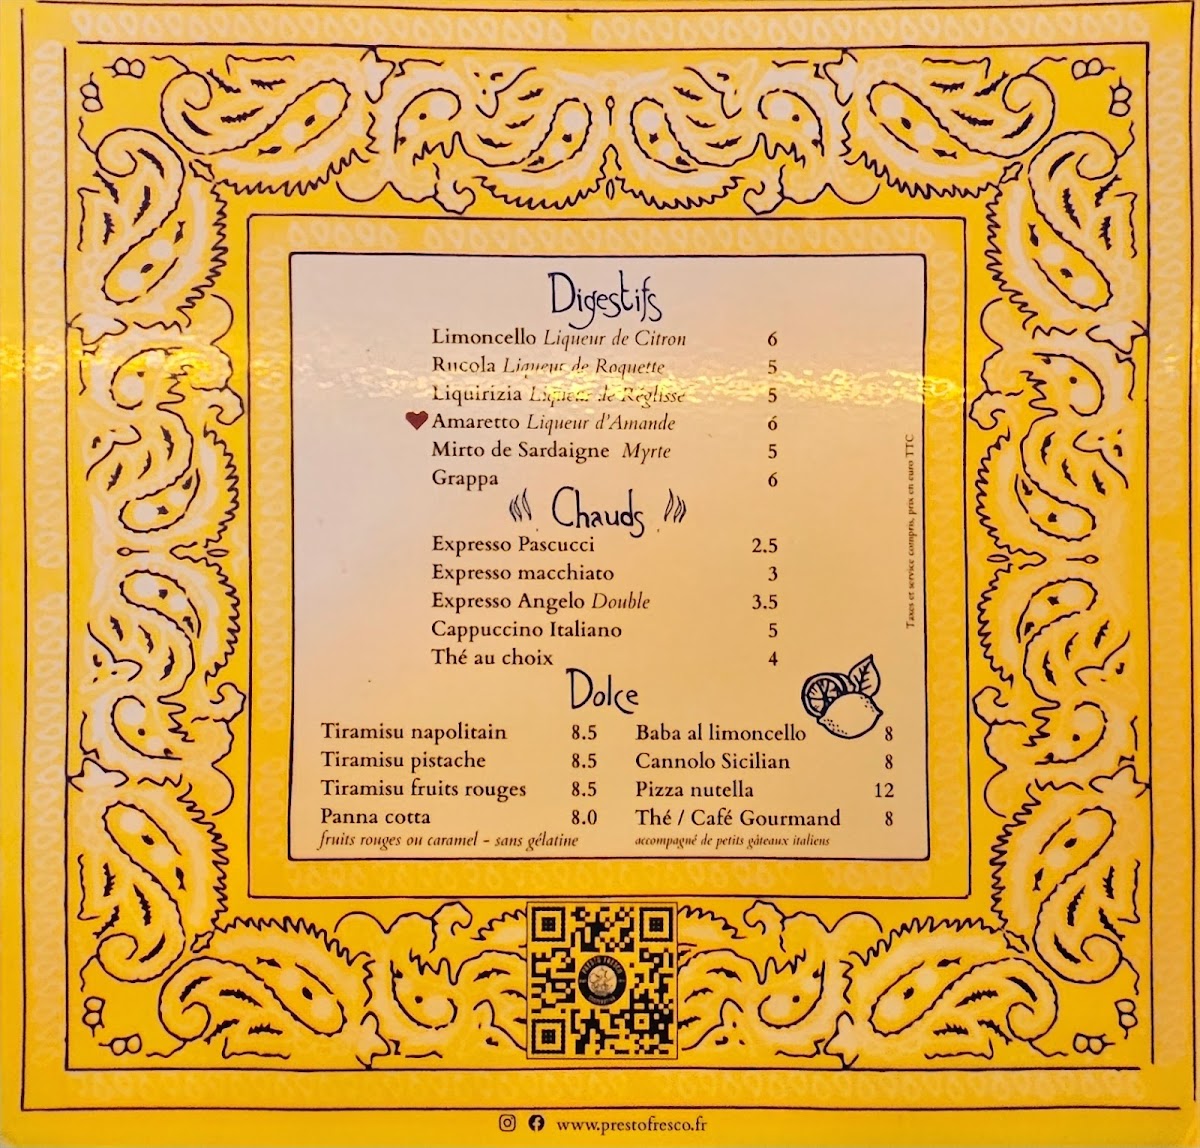 Digestifs
Limoncello Liqueur de Citron 6
Rucola Liqueur de Roquette 5
Liquirizia Liqueur de Réglisse 5
Amaretto Liqueur d'Amande 6
Mirto de Sardaigne Myrte 5
Grappa 6
Chauds
Expresso Pascucci 2.5
Expresso macchiato 3
Expresso Angelo Double 3.5
Cappuccino Italiano 5
Thé au choix 4
Taxes et service compris, prix en euro TTC
Dolce
Tiramisu napolitain 8.5
Tiramisu pistache 8.5
Tiramisu fruits rouges 8.5
Panna cotta 8.0
fruits rouges ou caramel - sans gélatine
Baba al limoncello 8
Cannolo Sicilian 8
Pizza nutella 12
Thé / Café Gourmand 8
accompagné de petits gâteaux italiens
PRESTO FRESCO
www.prestofresco.fr